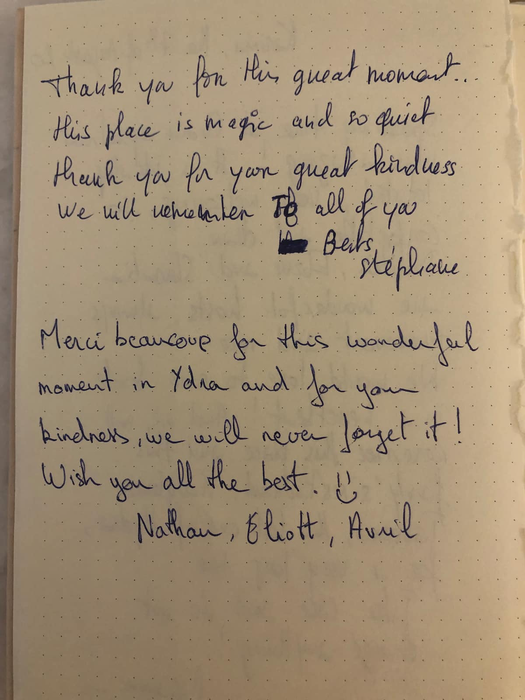 Thank you for this great moment...
this place is magic and so quiet
thank you for your great kindness
We will remember To all of you
Bests,
stéphane
Merci beaucoup for this wonderful
moment in Ydra and for your
kindness, we will never forget it!
Wish you all the best. :)
Nathan, Eliott, Avril